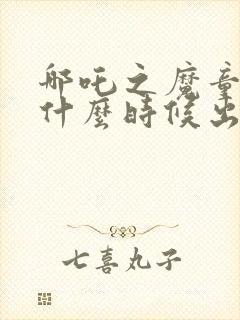 哪吒之魔童
什麼時候出
七喜丸子